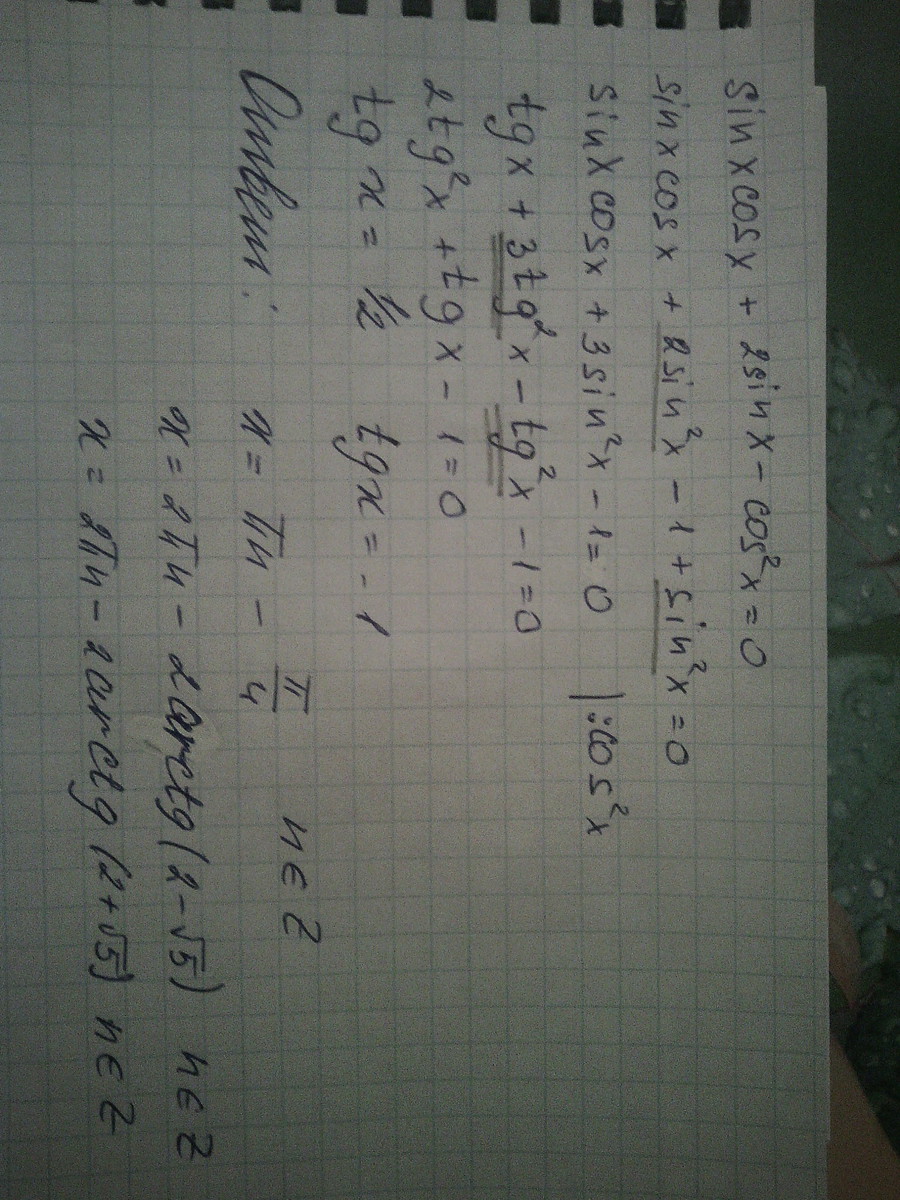 sin x cos x + 2sin x - cos²x = 0
sin x cos x + 2sin²x - 1 + sin²x = 0
sin x cos x + 3sin²x - 1 = 0 | : cos²x
tg x + 3tg²x - tg²x - 1 = 0
2tg²x + tg x - 1 = 0
tg x = 1/2 tg x = -1
Ответ: x = πn - π/4 n ∈ Z
x = 2πn - 2arctg(2-√5) n ∈ Z
x = 2πn - 2arctg(2+√5) n ∈ Z